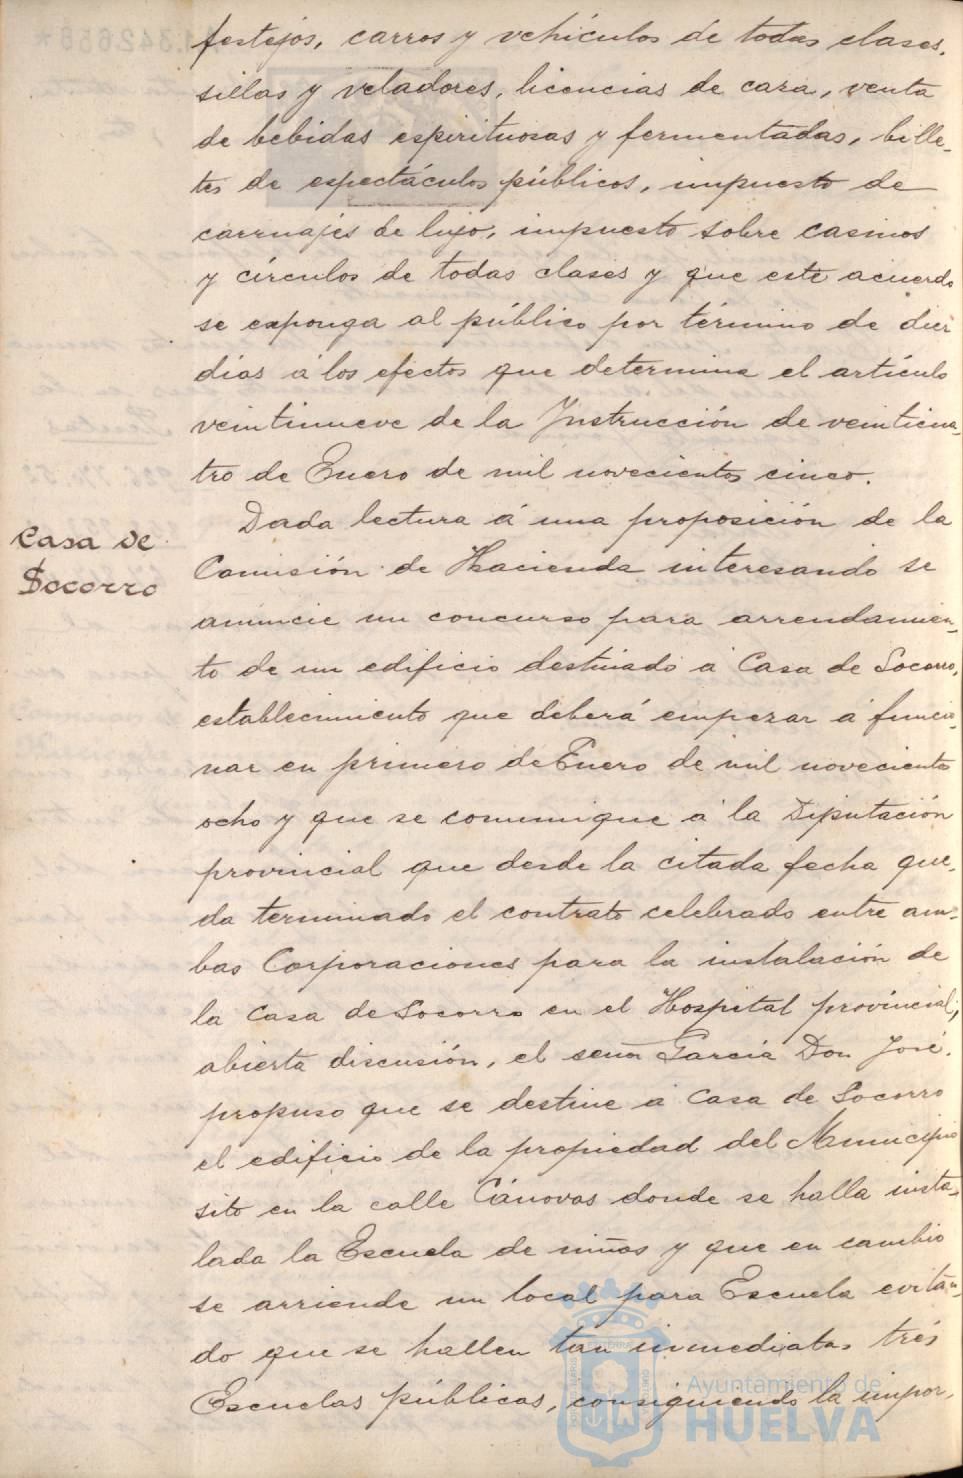 festejos, carros y vehículos de todas clases,
sillas y veladores, licencias de caza, venta
de bebidas espirituosas y fermentadas, bille-
tes de espectáculos públicos, impuesto de
carruajes de lujo, impuesto sobre casinos
y círculos de todas clases y que este acuerdo
se exponga al público por término de diez
días á los efectos que determina el artículo
veintinueve de la Instrucción de veinticua-
tro de Enero de mil novecientos cinco.
Casa de
Socorro
Dada lectura á una proposición de la
Comisión de Hacienda interesando se
anuncie un concurso para arrendamien-
to de un edificio destinado á Casa de Socorro,
establecimiento que deberá empezar á funcio-
nar en primero de Enero de mil novecientos
ocho y que se comunique á la Diputación
provincial que desde la citada fecha que-
da terminado el contrato celebrado entre am-
bas Corporaciones para la instalación de
la Casa de Socorro en el Hospital provincial;
abierta discusión, el señor García Don José,
propuso que se destine á Casa de Socorro
el edificio de la propiedad del Municipio
sito en la calle Cánovas donde se halla insta-
lada la Escuela de niños y que en cambio
se arriende un local para Escuela evitan-
do que se hallen tan inmediatas tres
Escuelas públicas, consiguiendo la impor-
Ayuntamiento de
HUELVA